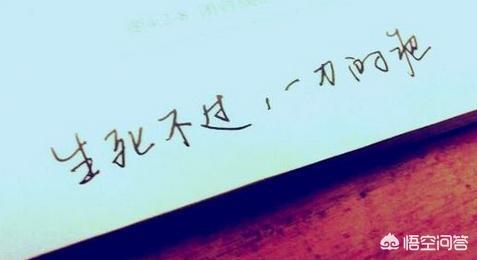 生死不过，一刀的疤
悟空问答